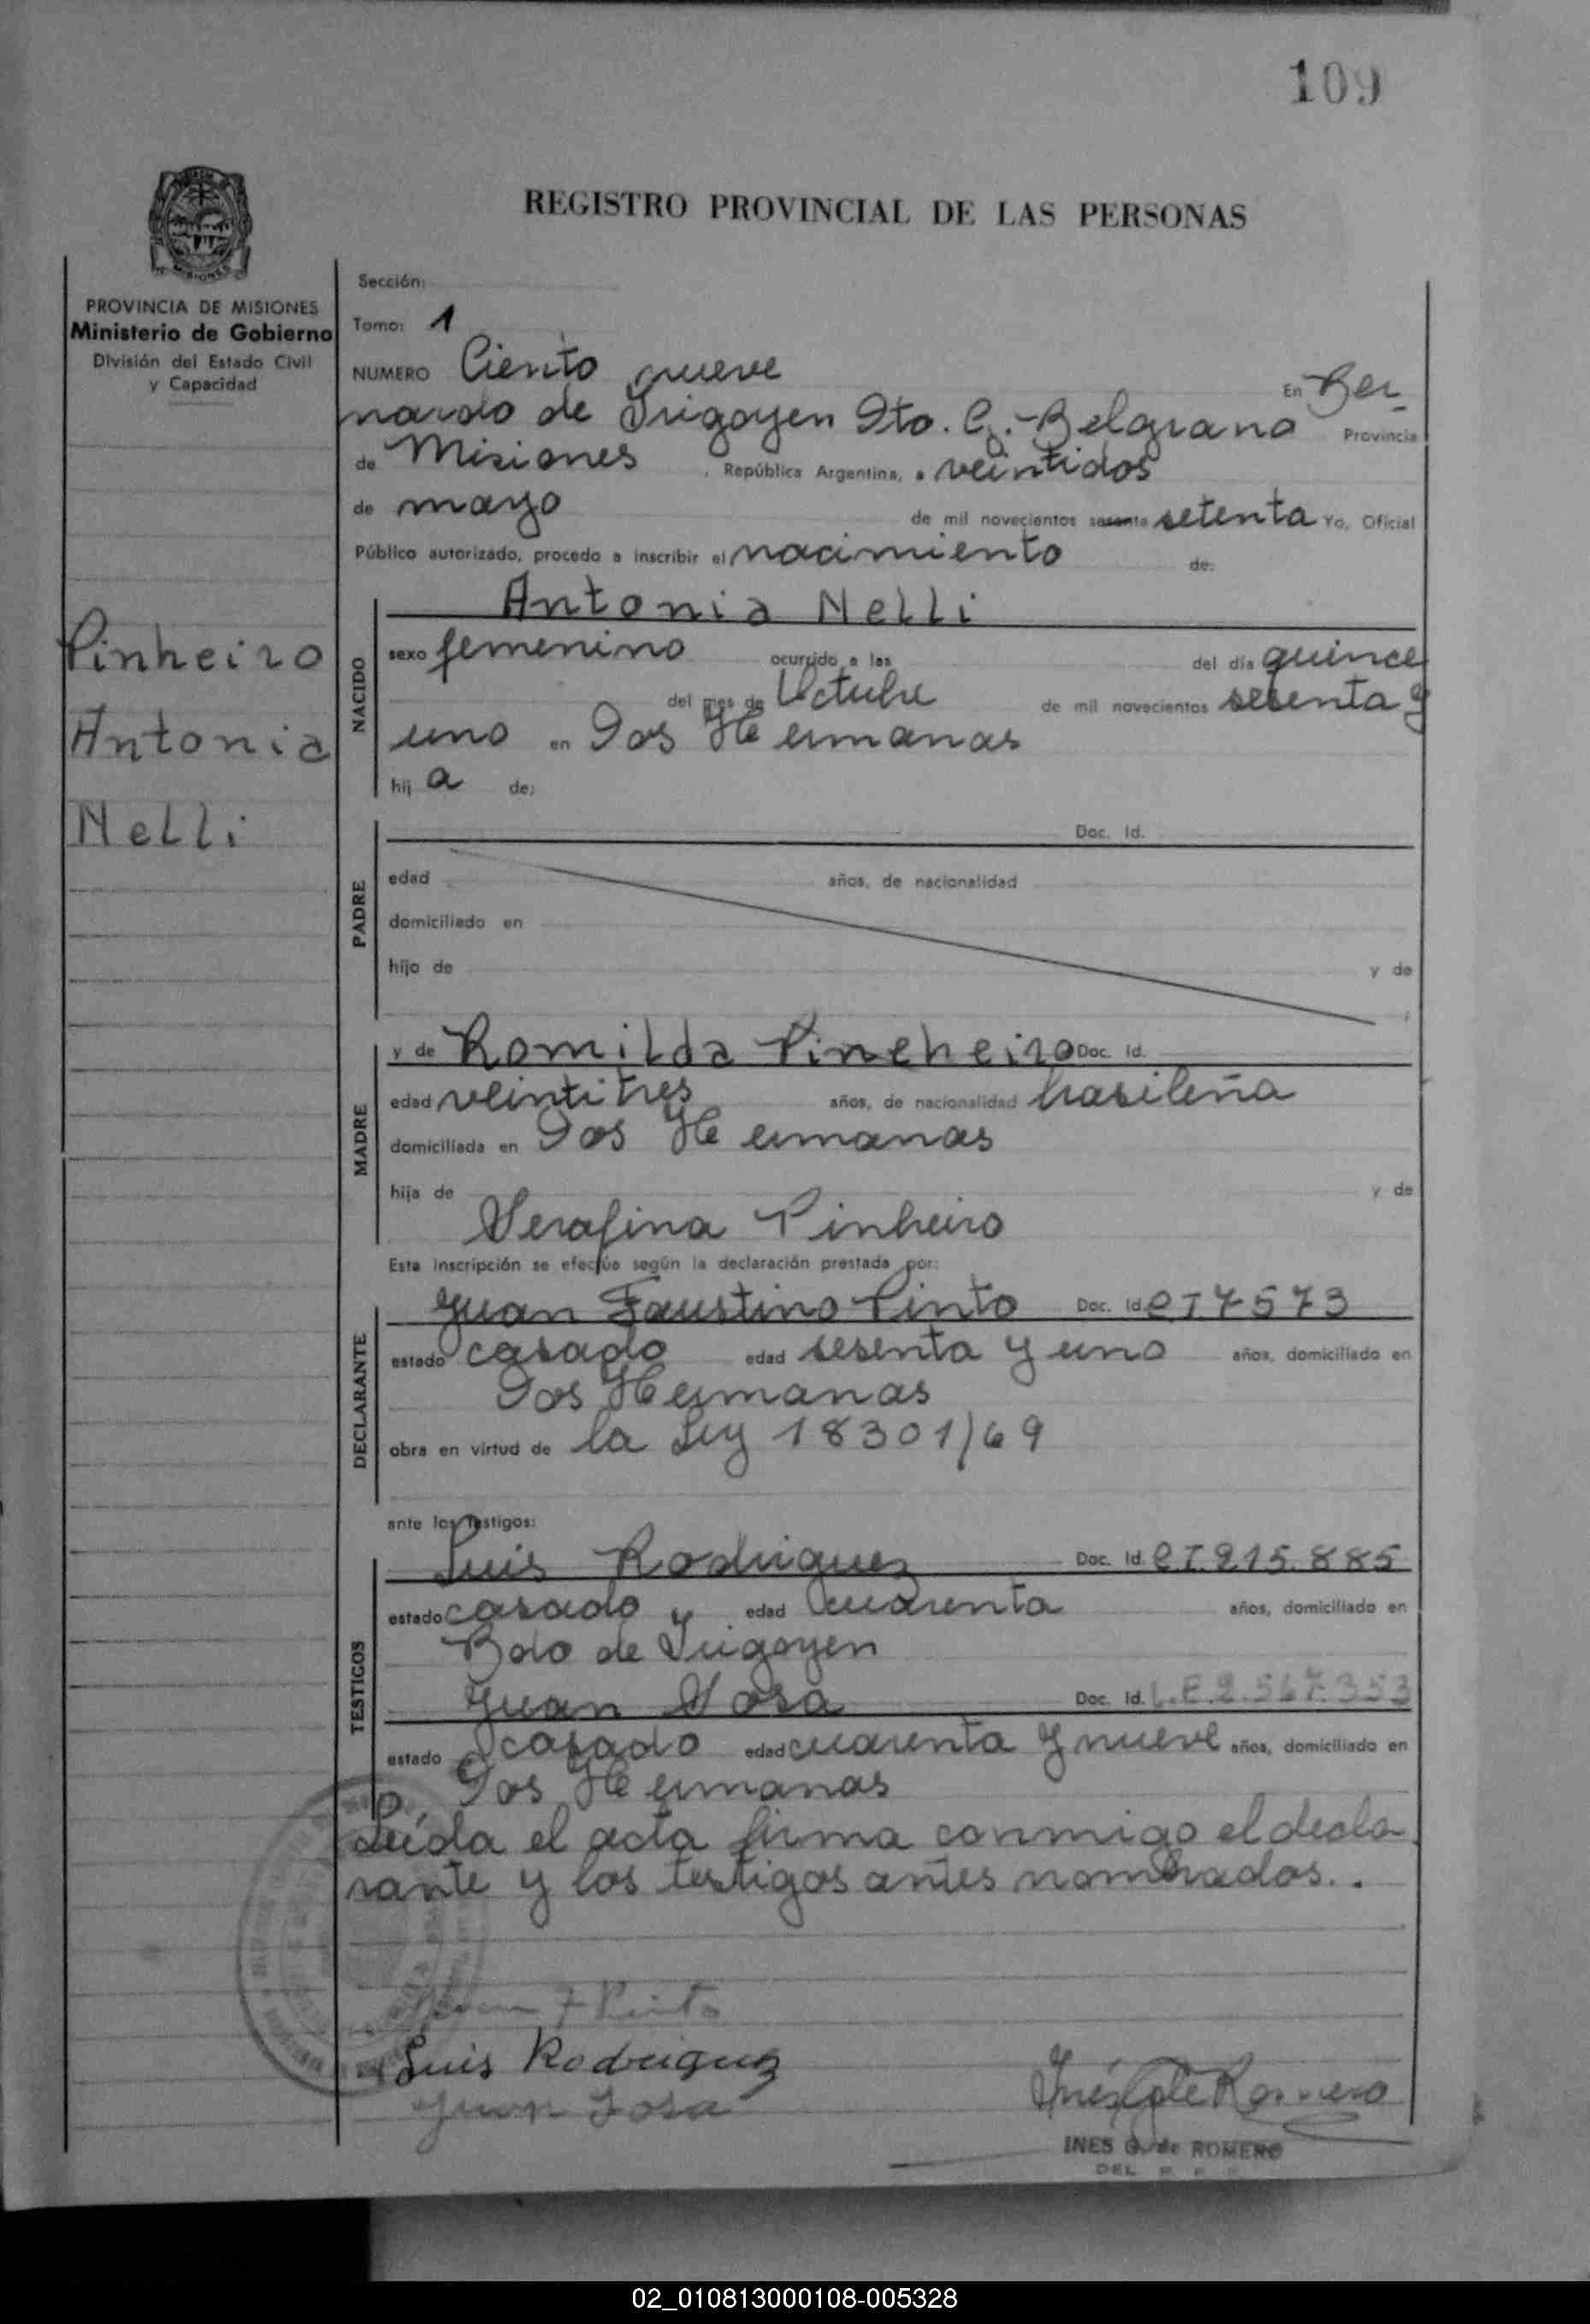 109
REGISTRO PROVINCIAL DE LAS PERSONAS
MISIONES
PROVINCIA DE MISIONES
Ministerio de Gobierno
División del Estado Civil
y Capacidad
Pinheiro
Antonia
Nelli
Sección:
Tomo: 1
NUMERO Ciento nueve En Ber-
nardo de Irigoyen Dto. G.-Belgrano Provincia
de Misiones, República Argentina, a veintidos
de mayo de mil novecientos sesenta setenta Yo, Oficial
Público autorizado, procedo a inscribir el nacimiento de:
NACIDO
Antonia Nelli
sexo femenino ocurrido a las del día quince
del mes de Octubre de mil novecientos sesenta y
uno en Dos Hermanas
hij a de:
PADRE
Doc. Id.
edad años, de nacionalidad
domiciliado en
hijo de y de
MADRE
y de Romilda Pineheiro Doc. Id.
edad veintitres años, de nacionalidad brasileña
domiciliada en Dos Hermanas
hija de y de
Serafina Pinheiro
Esta inscripción se efectúa según la declaración prestada por:
DECLARANTE
Juan Faustino Pinto Doc. Id. CI 7573
estado casado edad sesenta y uno años, domiciliado en
Dos Hermanas
obra en virtud de la Ley 18301/69
ante los testigos:
TESTIGOS
Luis Rodriguez Doc. Id. CI.215.885
estado casado y edad cuarenta años, domiciliado en
Bdo de Irigoyen
Juan Sosa Doc. Id. L.E.2.567.353
estado casado edad cuarenta y nueve años, domiciliado en
Dos Hermanas
Leída el acta firma conmigo el decla-
rante y los testigos antes nombrados..
Juan F Pinto
Luis Rodriguez
Juan Sosa
Inés G de Romero
INES G. de ROMERO
DEL
02_010813000108-005328